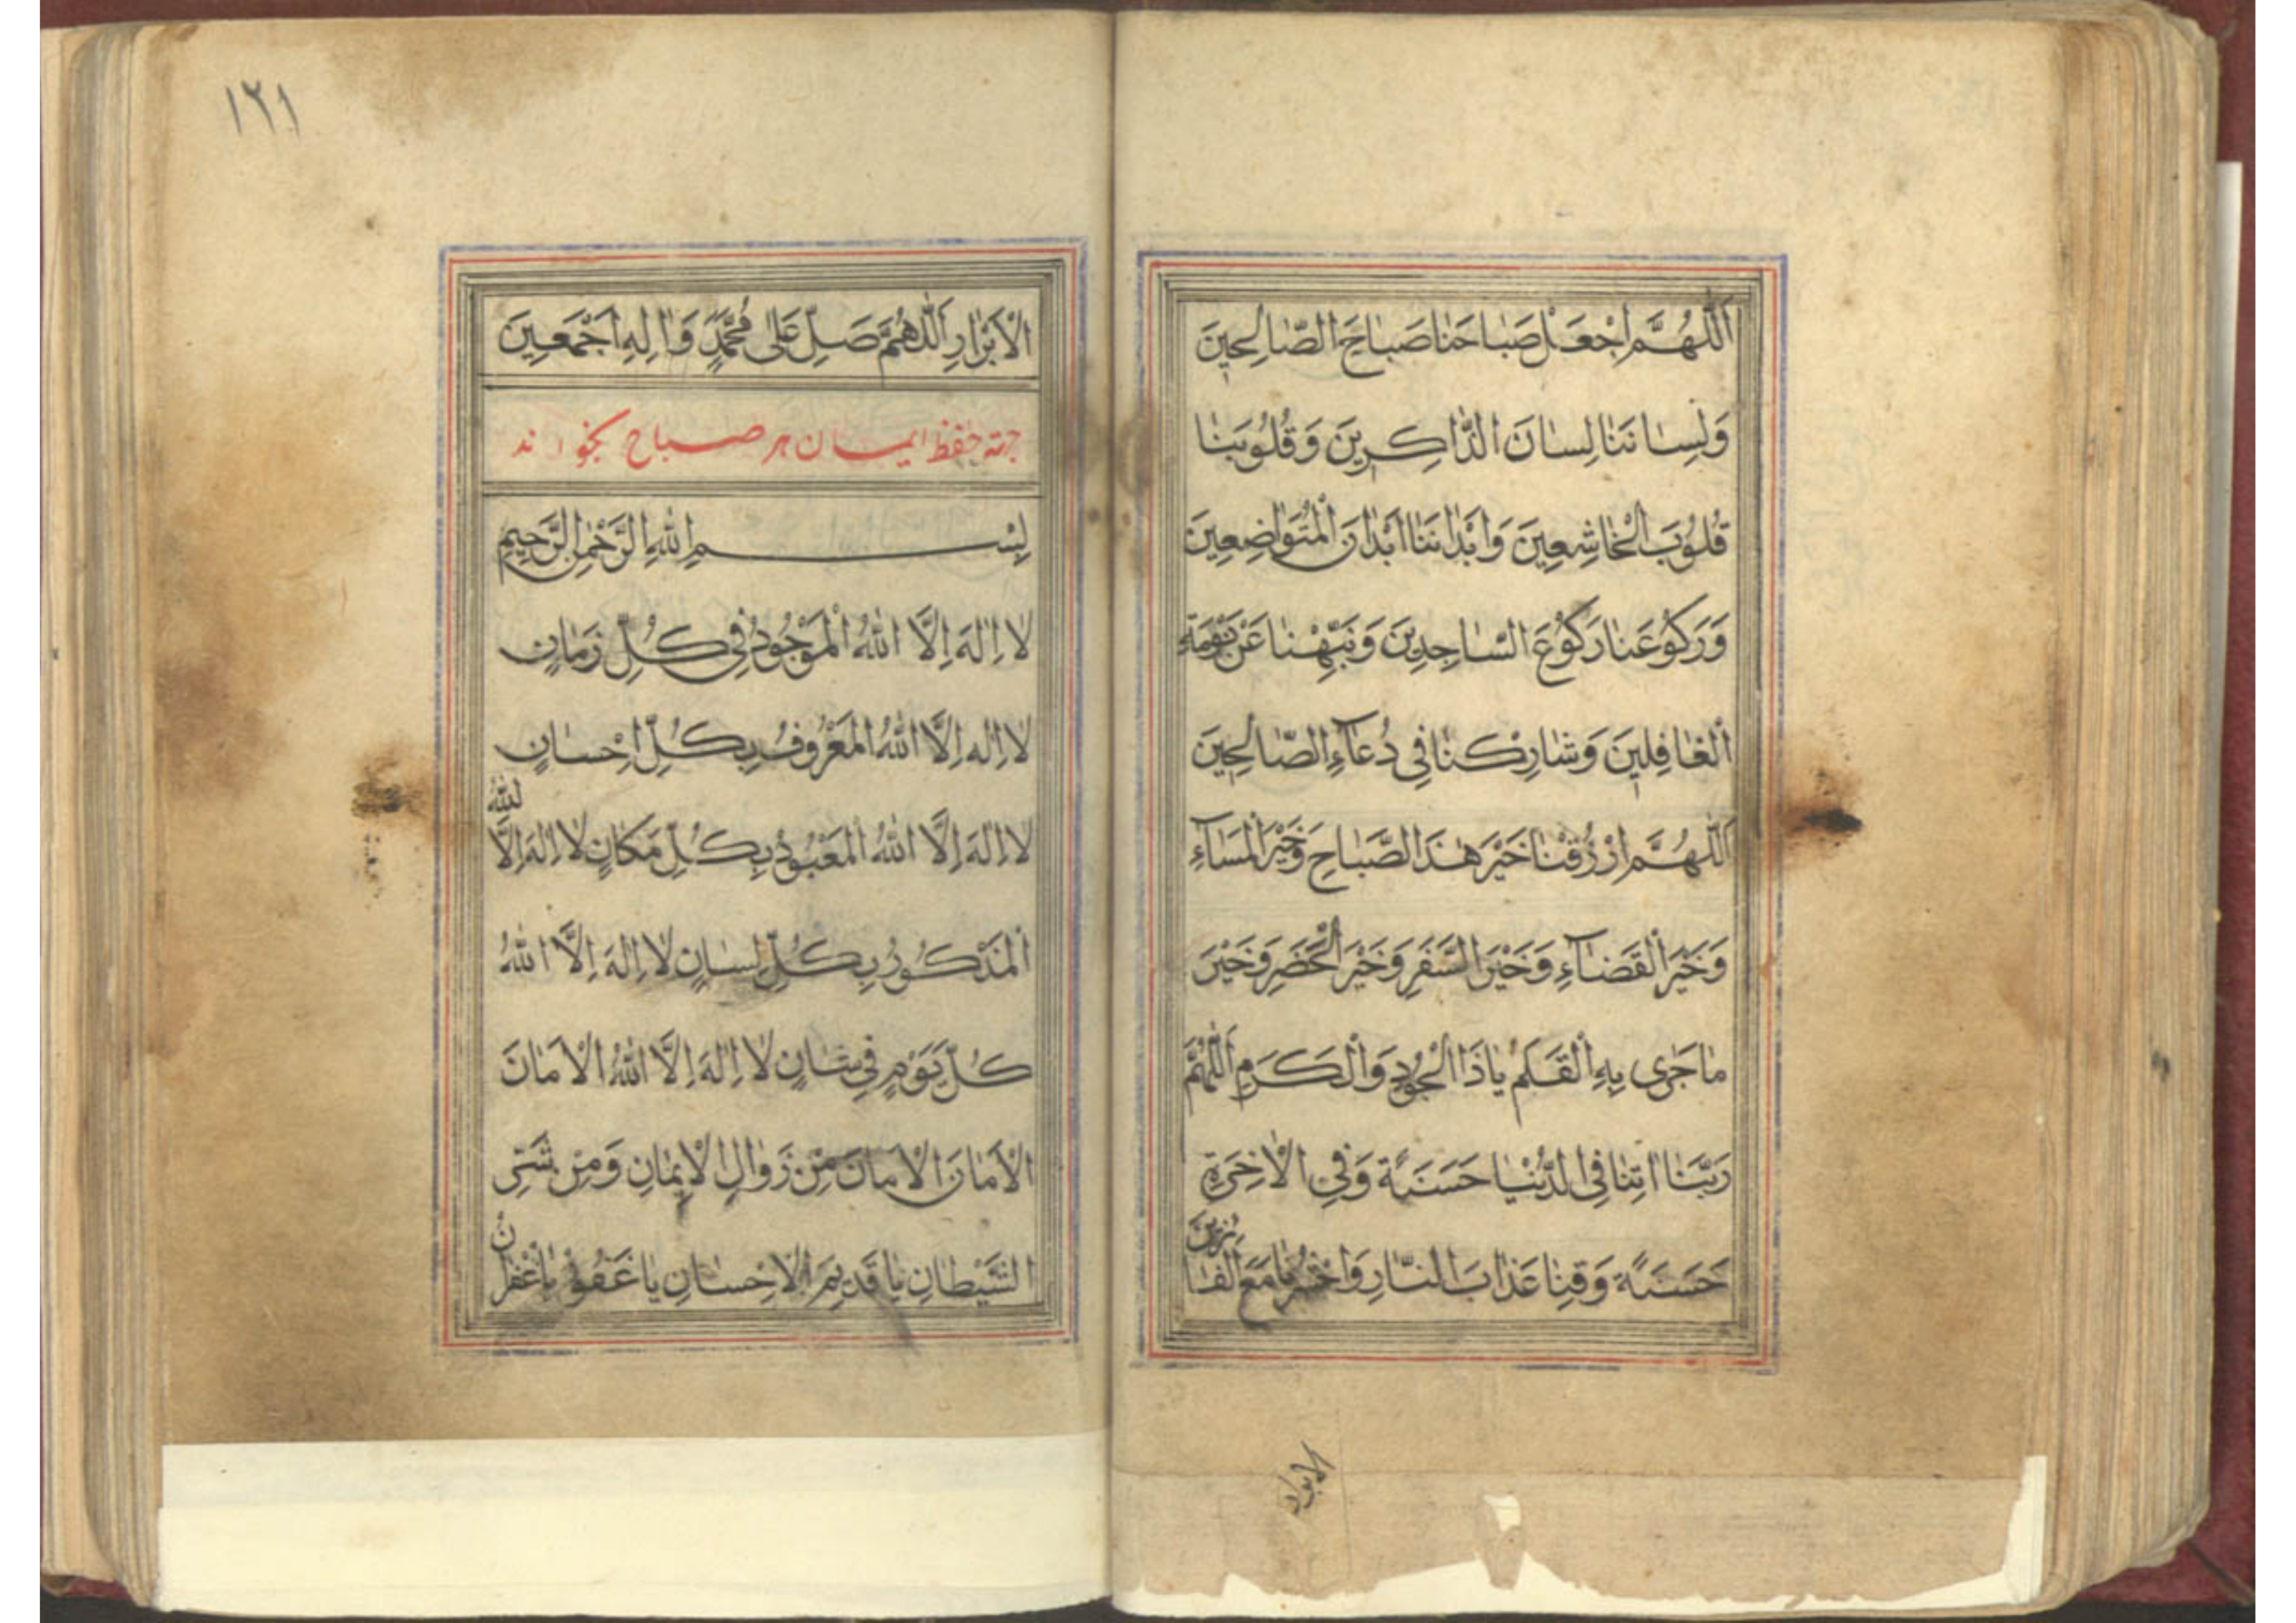 اَللّٰهُمَّ اجْعَلْ صَبٰاحَنٰا صَبٰاحَ الصّٰالِحِينَ
وَلِسٰانَنٰا لِسٰانَ الذّٰاكِرِينَ وَقُلُوبَنٰا
قُلُوبَ الْخٰاشِعِينَ وَاَبْدٰانَنٰا اَبْدٰانَ الْمُتَوٰاضِعِينَ
وَرَكُوعَنٰا رَكُوعَ السّٰاجِدِينَ وَنَبِّهْنٰا عَنْ نَوْمَةِ
الْغٰافِلِينَ وَشٰارِكْنٰا فِى دُعٰآءِ الصّٰالِحِينَ
اَللّٰهُمَّ ارْزُقْنٰا خَيْرَ هٰذَا الصَّبٰاحِ وَخَيْرَ الْمَسٰآءِ
وَخَيْرَ الْقَضٰآءِ وَخَيْرَ السَّفَرِ وَخَيْرَ الْحَضَرِ وَخَيْرَ
مٰا جَرٰى بِهِ الْقَلَمُ يٰا ذَا الْجُودِ وَالْكَرَمِ اَللّٰهُمَّ
رَبَّنٰا اٰتِنٰا فِى الدُّنْيٰا حَسَنَةً وَفِى الْاٰخِرَةِ
حَسَنَةً وَقِنٰا عَذٰابَ النّٰارِ وَاحْشُرْنٰا مَعَ الْفٰا
ئِزِينَ
الابرار
١٢١
الْاَبْرٰارِ اَللّٰهُمَّ صَلِّ عَلٰى مُحَمَّدٍ وَاٰلِهِ اَجْمَعِينَ
جهته حفظ ايمان هر صباح بخوانند
بِسْمِ اللّٰهِ الرَّحْمٰنِ الرَّحِيمِ
لٰا اِلٰهَ اِلَّا اللّٰهُ الْمَوْجُودُ فِى كُلِّ زَمٰانٍ
لٰا اِلٰهَ اِلَّا اللّٰهُ الْمَعْرُوفُ بِكُلِّ اِحْسٰانٍ
لٰا اِلٰهَ اِلَّا اللّٰهُ الْمَعْبُودُ بِكُلِّ مَكٰانٍ لٰا اِلٰهَ اِلَّا اللّٰهُ
الْمَذْكُورُ بِكُلِّ لِسٰانٍ لٰا اِلٰهَ اِلَّا اللّٰهُ
كُلَّ يَوْمٍ فِى شٰانٍ لٰا اِلٰهَ اِلَّا اللّٰهُ الْاَمٰانَ
الْاَمٰانَ الْاَمٰانَ مِنْ زَوٰالِ الْاِيمٰانِ وَمِنْ شَرِّ
الشَّيْطٰانِ يٰا قَدِيمَ الْاِحْسٰانِ يٰا غَفُورُ يٰا غُفْرٰانْ